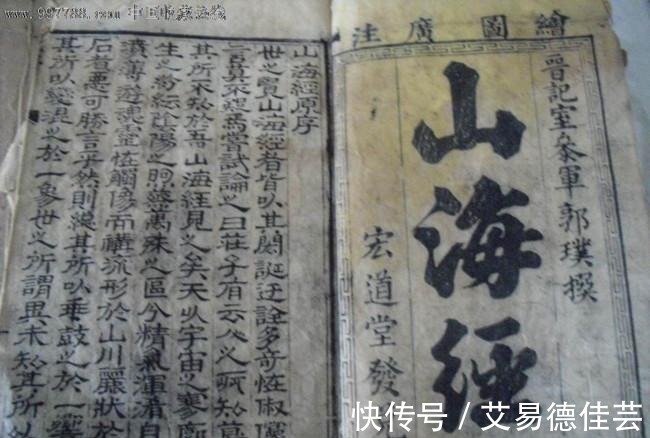 www.997788.com 中国收藏热线
繪圖廣注
晉記室參軍郭璞撰
山海經
宏道堂發
山海經原序
世之覽山海經者皆以其閎誕迂誇多奇怪俶
言莫不疑焉嘗試論之曰莊子有云人之所知莫
其所不知於吾山海經見之矣夫以宇宙之寥廓
生之紛紜陰陽之煦蒸萬殊之區分精氣渾自
濆薄遊魂靈怪觸像而構流形於山川麗狀於
石者惡可勝言乎然則總其所以乖鼓之於一
其所以變混之於一象世之所謂異未知其所以
快传号 / 艾易德佳芸